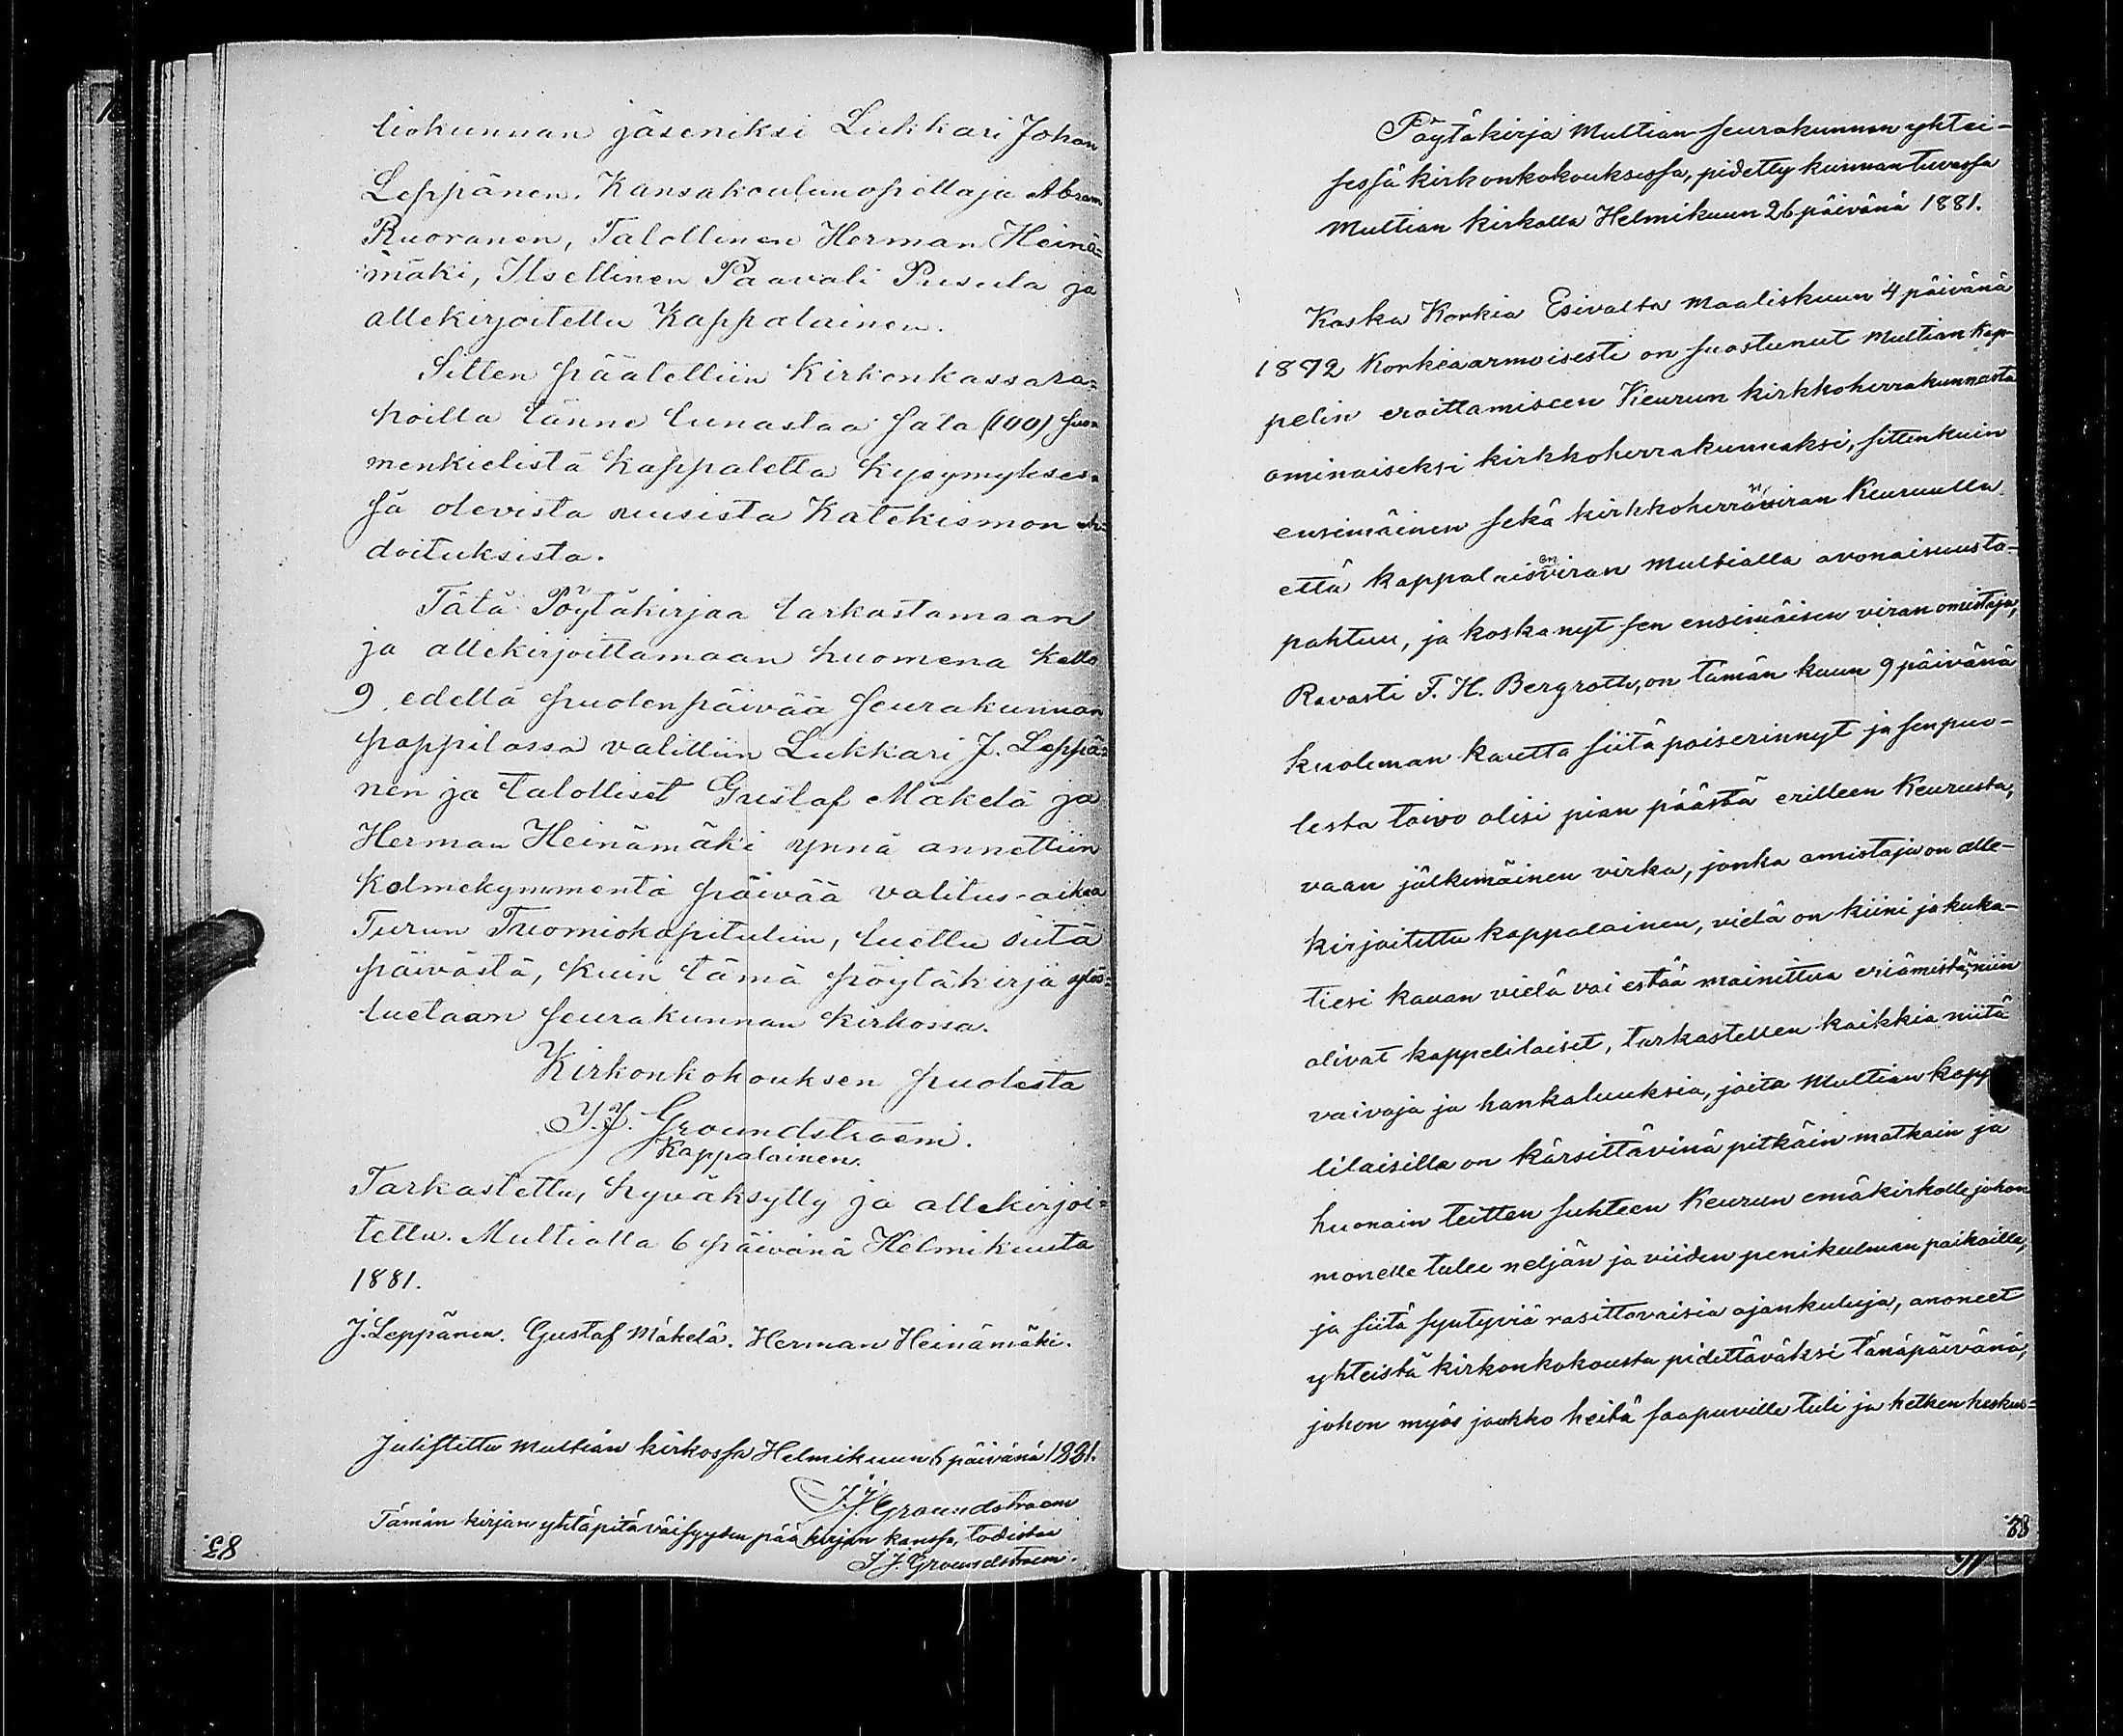 liokunnan jäseniksi Lukkari Johan
Leppänen, Kansakoulunopettaja Abram
Ruoranen, Talollinen Herman Heinä-
mäki, Itsellinen Paavali Pusula ja
allekirjoitettu Kappalainen.
Sitten päätettiin Kirkonkassara-
hoilla tänne lunastaa sata (100) suo-
menkielistä kappaletta kysymykses-
sä olevista uusista Katekismon eh-
doituksista.
Tätä Pöytäkirjaa tarkastamaan
ja allekirjoittamaan huomena kello
9. edellä puolenpäivää seurakunnan
pappilassa valittiin Lukkari J. Leppä-
nen ja talolliset Gustaf Mäkelä ja
Herman Heinämäki ynnä annettiin
Kolmekymmentä päivää valitus-aikaa
Turun Tuomiokapituliin, luettu siitä
päivästä, kuin tämä pöytäkirja ylös-
luetaan seurakunnan kirkossa.
Kirkonkokouksen puolesta
J. J. Groundstroem.
Kappalainen.
Tarkastettu, hyväksytty ja allekirjoi-
tettu. Multialla 6 päivänä Helmikuuta
1881.
J. Leppänen. Gustaf Mäkelä. Herman Heinämäki.
Julistettu Multian kirkossa Helmikuun 6 päivänä 1881.
J. J. Groundstroem
Tämän kirjan yhtäpitäväisyyden pääkirjan kanssa, todistaa
J. J. Groundstroem.
83.
Pöytäkirja Multian seurakunnan yhtei-
sessä kirkonkokouksessa, pidetty kunnantuvassa
Multian kirkolla Helmikuun 26 päivänä 1881.
Koska Korkia Esivalta Maaliskuun 4 päivänä
1872 Korkiaarmoisesti on suostunut Multian Kap-
pelin eroittamiseen Keurun kirkkoherrakunnasta
ominaiseksi kirkkoherrakunnaksi, sittenkuin
ensimäinen sekä kirkkoherran viran Keuruulla
että kappalaisen viran Multialla avonaisuusta-
pahtuu, ja koska nyt sen ensimäisen viran omistaja,
Rovasti F. H. Bergroth, on tämän kuun 9 päivänä
kuoleman kautta siitä poiserinnyt ja sen puo-
lesta toivo olisi pian päästä erilleen Keurusta,
vaan jälkimäinen virka, jonka omistaja on alle-
kirjoitettu kappalainen, vielä on kiini ja kuka-
tiesi kauan vielä voi estää mainittua eriämistä, niin
olivat kappelilaiset, tarkastellen kaikkia niitä
vaivoja ja hankaluuksia, joita Multian kapp
lilaisilla on kärsittävinä pitkäin matkain ja
huonoin teitten suhteen Keurun emäkirkolle, johon
monelle tulee neljän ja viiden penikulman paikoille,
ja siitä syntyviä rasittavaisia ajankuluja, anoneet
yhteistä kirkonkokousta pidettäväksi tänäpäivänä,
johon myös joukko heitä saapuville tuli ja hetken keskus-